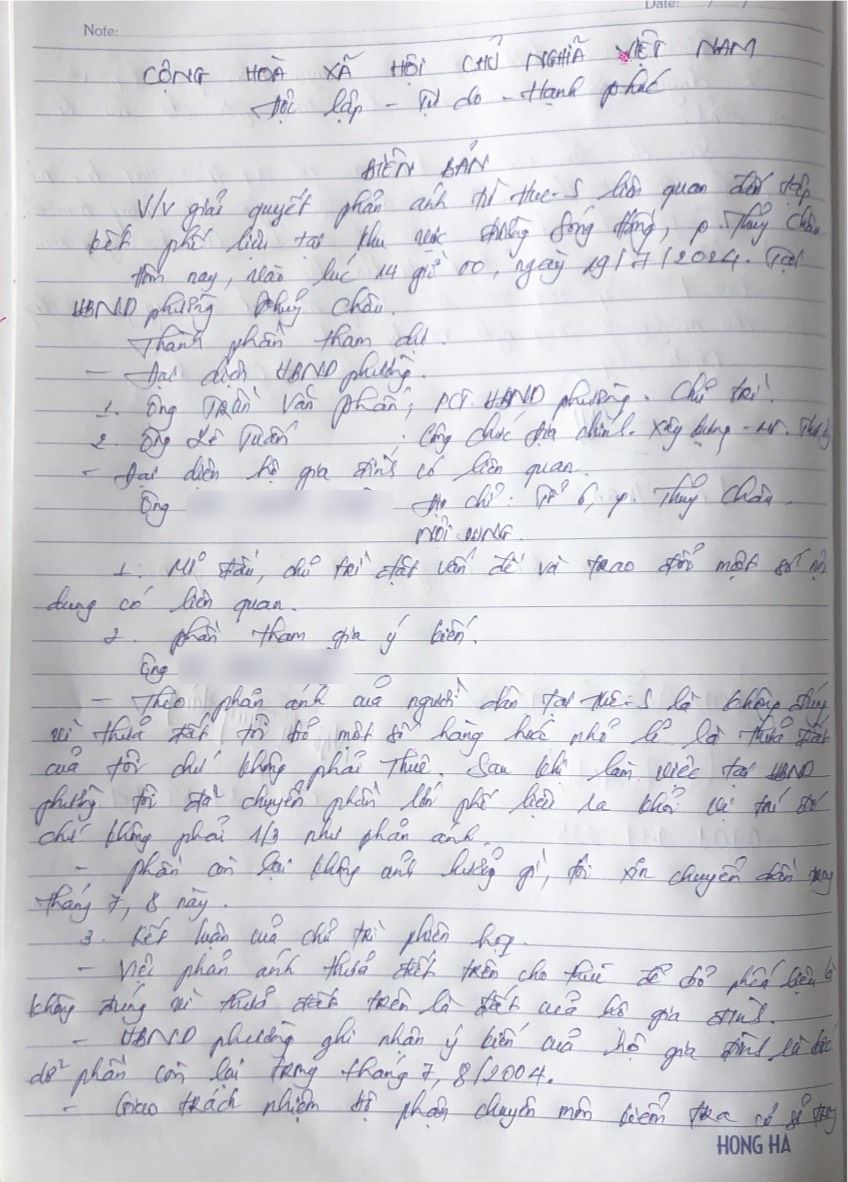 Note:
Date: / /
CỘNG HOÀ XÃ HỘI CHỦ NGHĨA VIỆT NAM
Độc lập - Tự do - Hạnh phúc
BIÊN BẢN
V/v giải quyết phản ánh từ Hue-S liên quan đến tập
kết phế liệu tại khu vực đường Sóng Hồng, p. Thuỷ Châu
Hôm nay, vào lúc 14 giờ 00, ngày 19/7/2024. Tại
UBND phường Thuỷ Châu.
Thành phần tham dự.
- Đại diện UBND phường.
1. Ông Trần Văn Phấn; PCT. UBND phường. Chủ trì.
2. Ông Lê Tuấn : Công chức địa chính - xây dựng -
- Đại diện hộ gia đình có liên quan.
Ông Địa chỉ: Tổ 6, p. Thuỷ Châu.
NỘI DUNG.
1. Mở đầu, chủ trì đặt vấn đề và trao đổi một số nội
dung có liên quan.
2. Phần tham gia ý kiến.
Ông
- Theo phản ánh của người dân tại Hue-S là không đúng
vì thửa đất tôi đổ một số hàng hoá nhỏ lẻ là thửa đất
của tôi chứ không phải thuê. Sau khi làm việc tại UBND
phường tôi đã chuyển phần lớn phế liệu ra khỏi vị trí đó
chứ không phải 1/3 như phản ánh.
- Phần còn lại không ảnh hưởng gì, tôi xin chuyển dần trong
tháng 7, 8 này.
3. Kết luận của chủ trì phiên họp.
- Việc phản ánh thửa đất trên cho thuê để đổ phế liệu là
không đúng vì thửa đất trên là đất của hộ gia đình.
- UBND phường ghi nhận ý kiến của hộ gia đình là bốc
dỡ phần còn lại trong tháng 7, 8/2004.
- Giao trách nhiệm bộ phận chuyên môn kiểm tra cơ sở trong
HONG HA